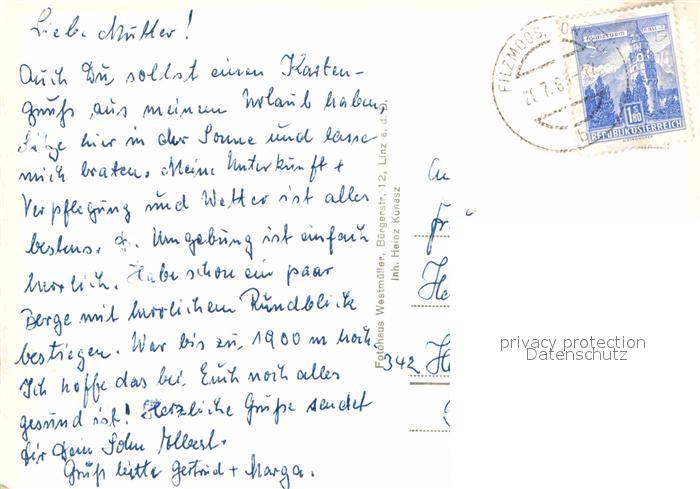 Liebe Mutter!
Auch Du sollst einen Karten-
gruß aus meinem Urlaub haben,
Sitze hier in der Sonne und lasse
mich braten. Meine Unterkunft +
Verpflegung und Wetter ist alles
bestens. d. Umgebung ist einfach
herrlich. Habe schon ein paar
Berge mit herrlichem Rundblick
bestiegen. War bis zu 1900 m hoch.
Ich hoffe das bei Euch noch alles
gesund ist! Herzliche Grüße sendet
Dir Dein Sohn
Gruß bitte Gertrud + Marga.
Fotohaus Westmüller, Bürgerstr. 12, Linz a. d. D.
Inh. Heinz Kunasz
FILZMOOS
7.8
MÜNZTURM HALL I. T.
1.80
REPUBLIK ÖSTERREICH
An
Fr
He
342 H
privacy protection
Datenschutz